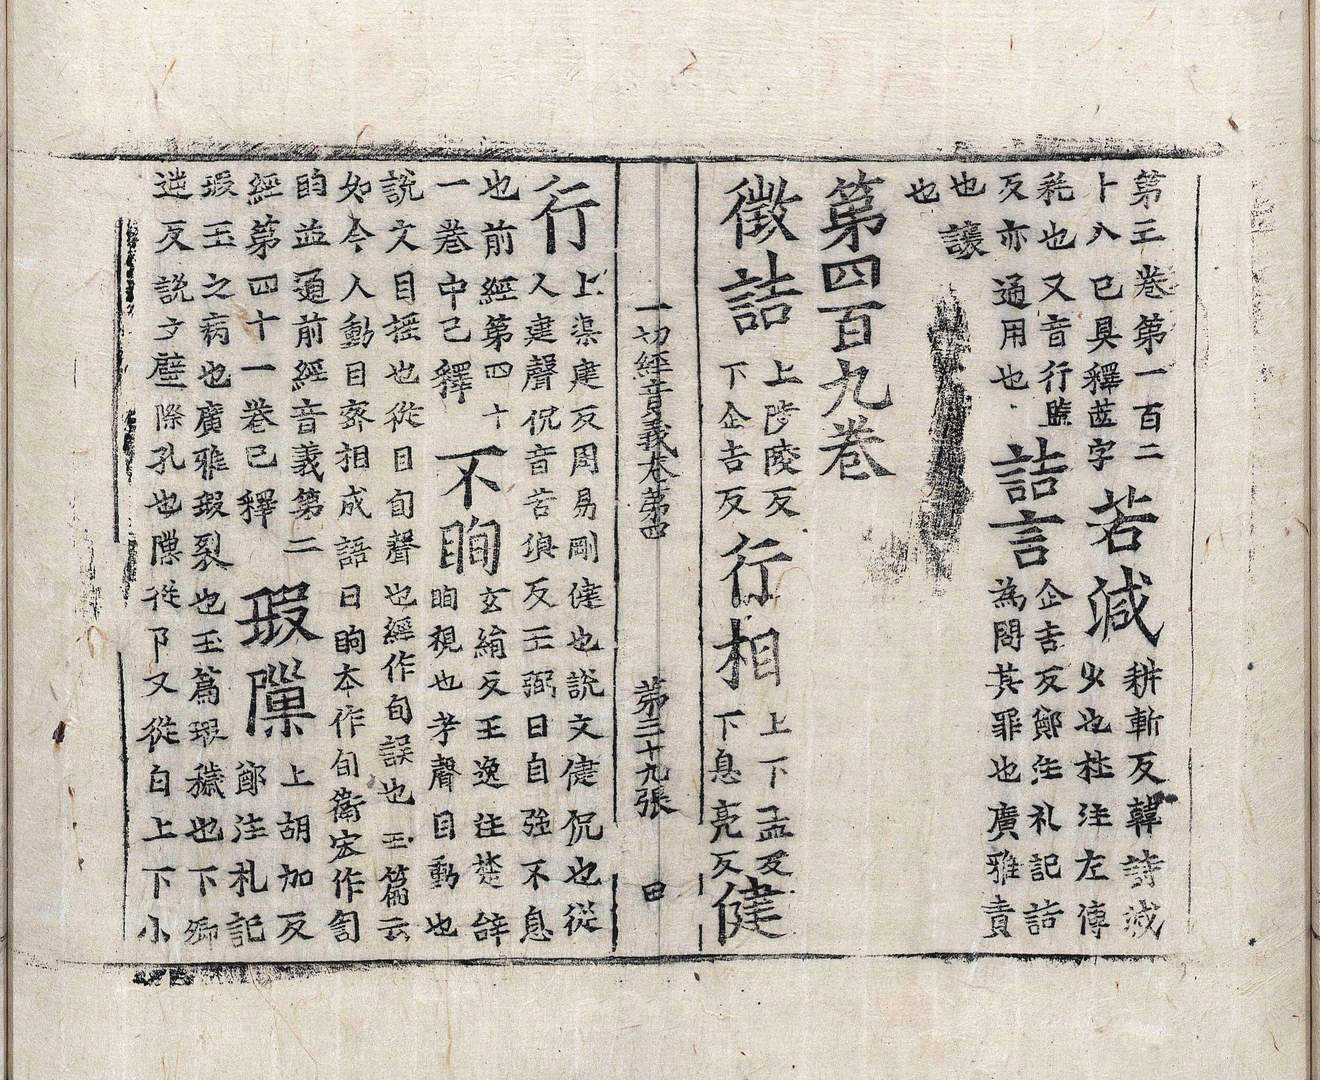 第三巻第一百二
卜八已具釋葅字
若減
耕斬反韓詩減
少也杜注左傳
秏也又音行監
反亦通用也
詰言
企吉反鄭注礼記詰
為問其罪也廣雅責
也讓
也
第四百九巻
徵詰
上陟陵反
下企吉反
行相
上下孟反
下息亮反
健
行
上渠建反周易剛健也說文健伉也從
人建聲伉音苦浪反王弼曰自強不息
也前經第四十
一巻中已釋
不眴
玄絢反王逸注楚辞
眴視也考聲目動也
說文目揺也從目旬聲也經作旬誤也玉篇云
如今人動目宻相成語曰眴本作旬衛宏作訇
眴並通前經音義第二
經第四十一巻已釋
瑕隟
上胡加反
鄭注礼記
瑕玉之病也廣雅瑕裂也玉篇瑕穢也下卿
逆反說文壁際孔也隟從阝又從白上下小
一切經音義巻第四
第三十九張
曰